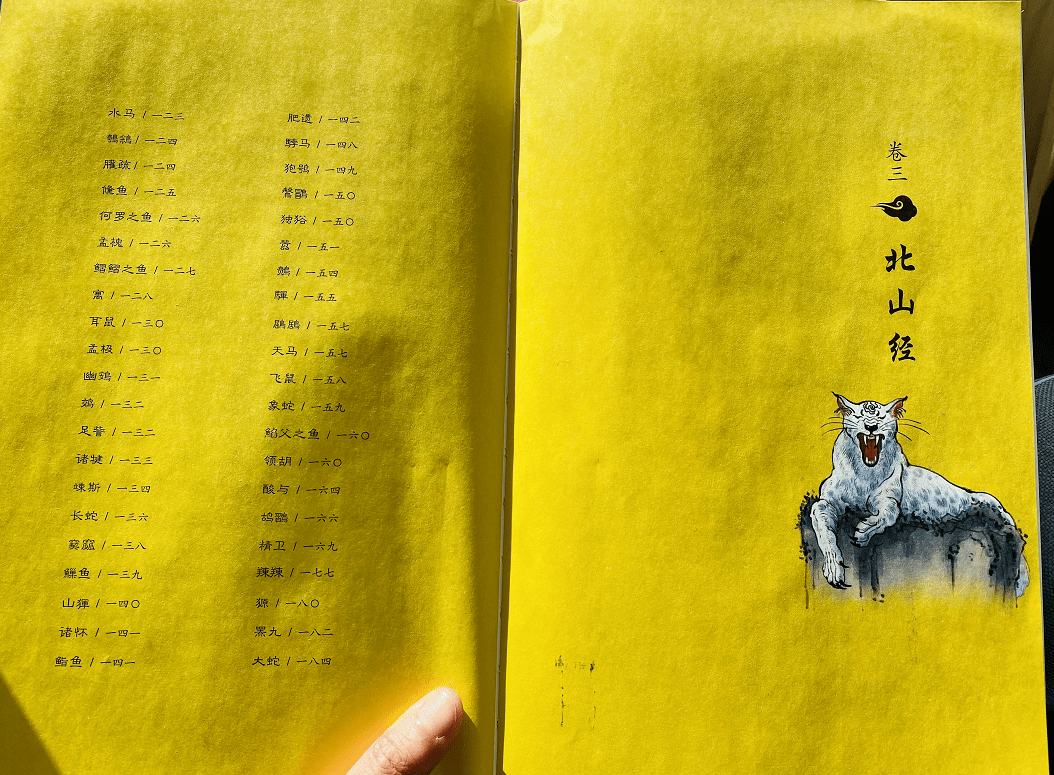 水马 / 一二三
鵸鵌 / 一二四
疏 / 一二四
鱼 / 一二五
何罗之鱼 / 一二六
孟槐 / 一二六
鳛鳛之鱼 / 一二七
寓 / 一二八
耳鼠 / 一三〇
孟极 / 一三〇
幽鴳 / 一三一
/ 一三二
足訾 / 一三二
诸犍 / 一三三
竦斯 / 一三四
长蛇 / 一三六
窫窳 / 一三八
鱼 / 一三九
山 / 一四〇
诸怀 / 一四一
鮨鱼 / 一四一
肥遗 / 一四二
马 / 一四八
狍鸮 / 一四九
/ 一五〇
独 / 一五〇
嚣 / 一五一
/ 一五四
驒 / 一五五
/ 一五七
天马 / 一五七
飞鼠 / 一五八
象蛇 / 一五九
父之鱼 / 一六〇
领胡 / 一六〇
酸与 / 一六四
/ 一六六
精卫 / 一六九
/ 一七七
獂 / 一八〇
罴九 / 一八二
大蛇 / 一八四
卷三
北山经